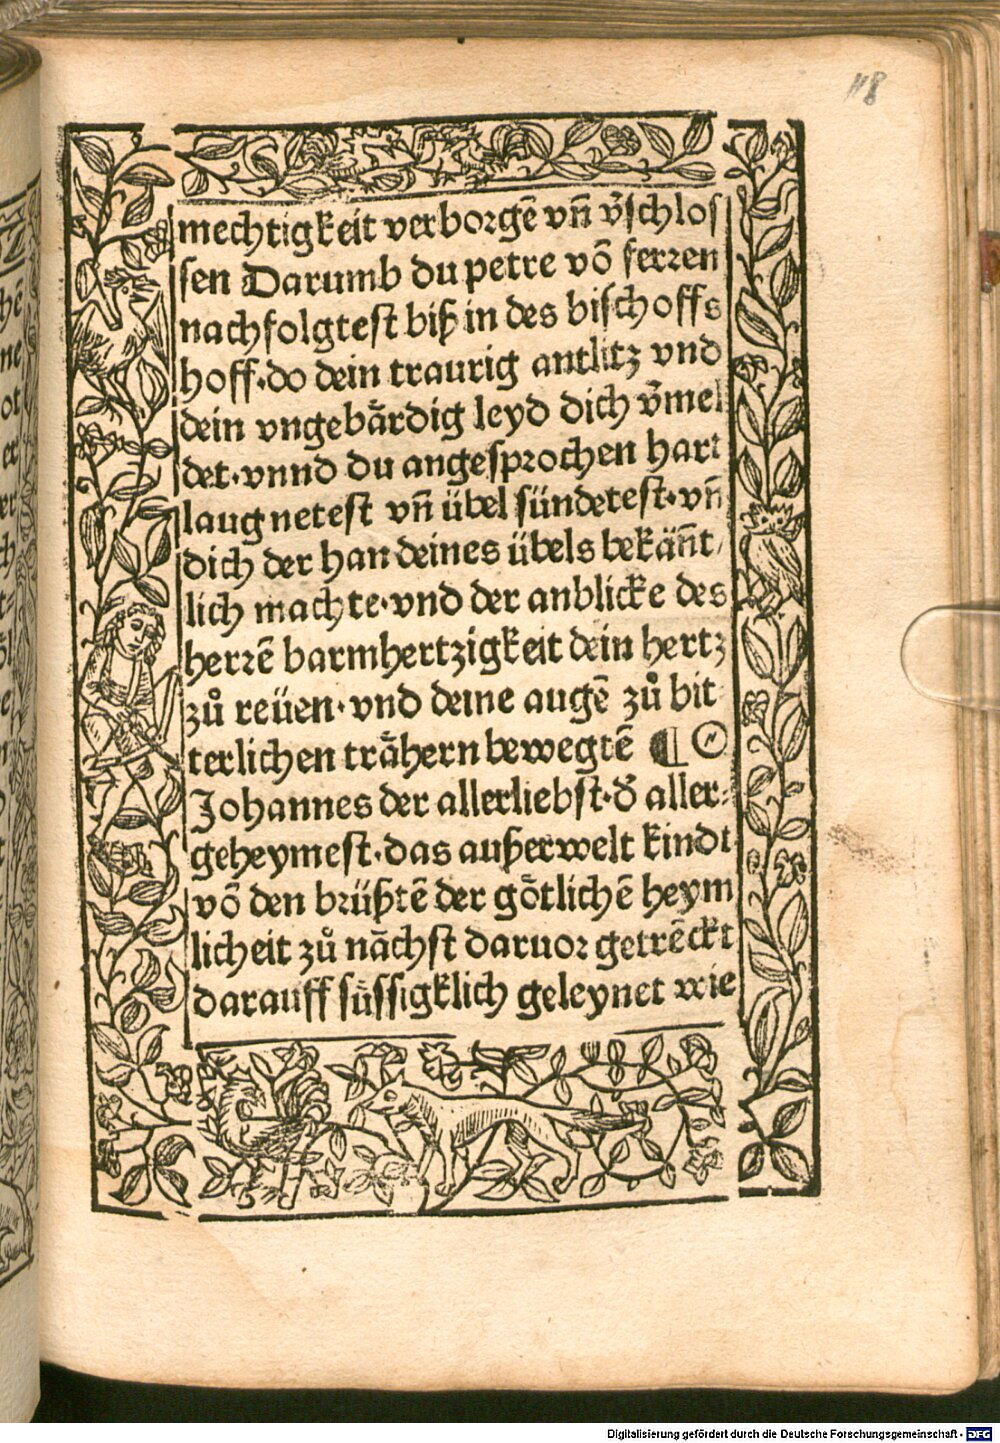 118
mechtigkeit verborgē vn̄ v̄schlos
sen Darumb du petre vō ferren
nachfolgtest biß in des bischoffs
hoff·do dein traurig antlitz vnd
dein vngebärdig leyd dich v̄mel
det·vnnd du angesprochen hart
laugnetest vn̄ übel sündetest·vn̄
dich der han deines übels bekän̄t
lich machte·vnd der anblicke des
herrē barmhertzigkeit dein hertz
zů reüen·vnd deine augē zů bit
terlichen trähern bewegtē ¶ O
Johannes der allerliebst·d̄ aller-
geheymest·das außerwelt kindt
vō den brüßtē der götlichē heym
licheit zů nächst daruor getrēckt
darauff süssigklich geleynet wie
Digitalisierung gefördert durch die Deutsche Forschungsgemeinschaft - DFG